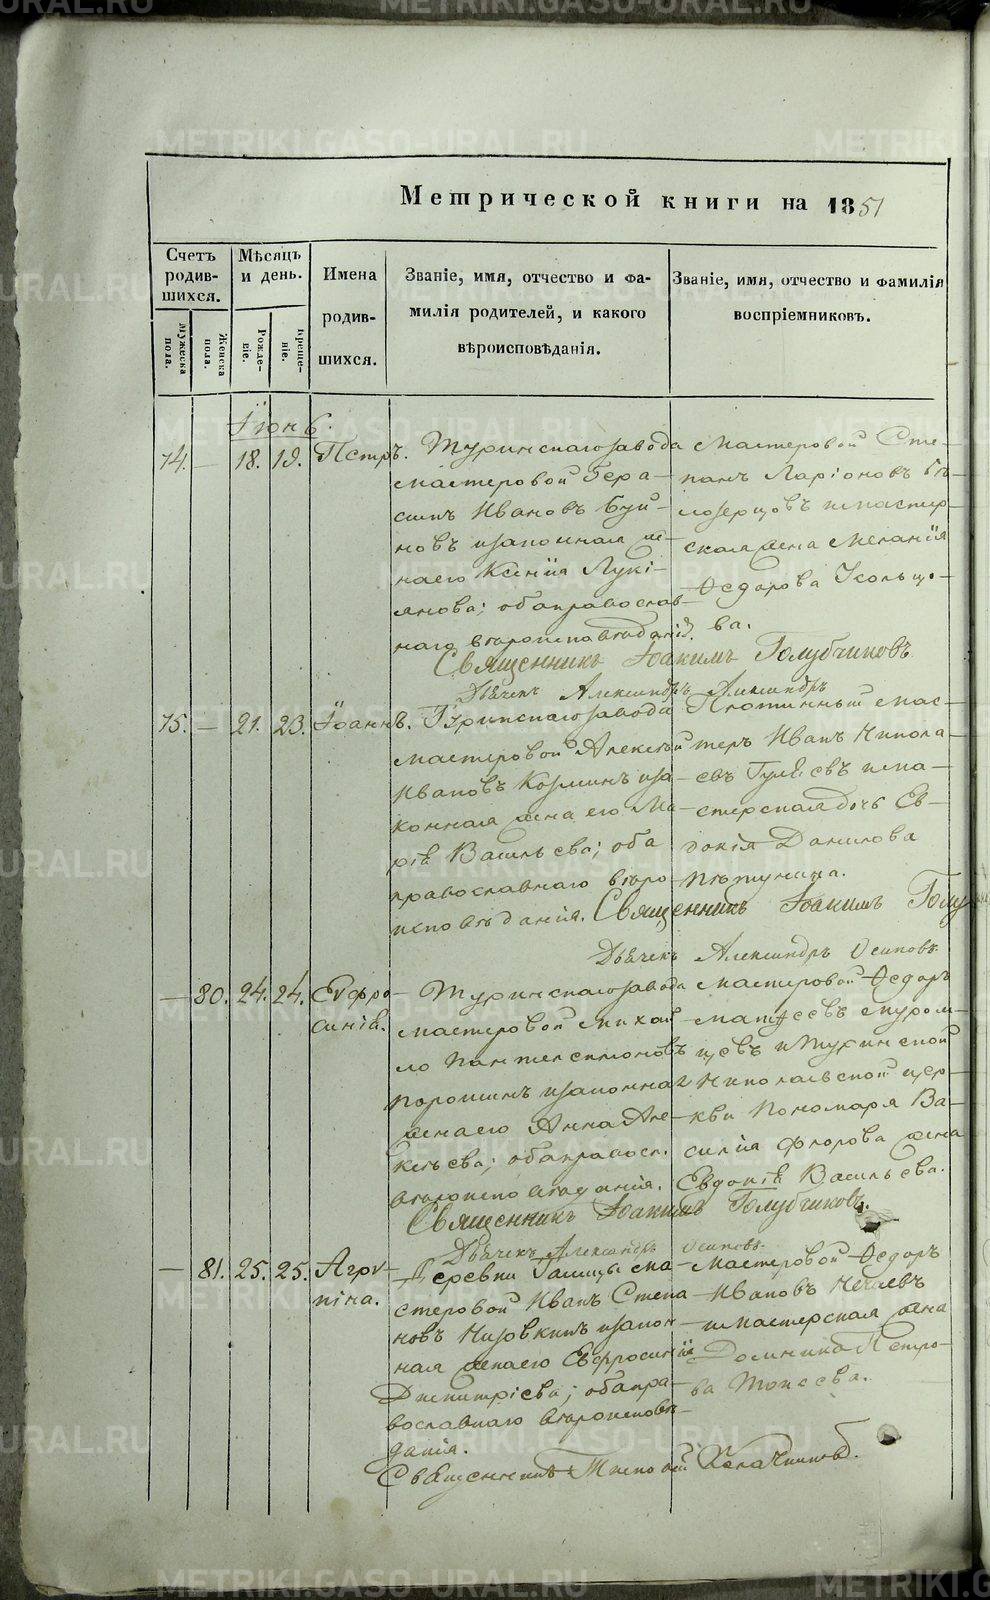 Метрической книги на 1851
Счетъ родив-шихся.
Мѣсяцъ и день.
Имена родив-шихся.
Званіе, имя, отчество и фа-
милія родителей, и какого
вѣроисповѣданія.
Званіе, имя, отчество и фамилія
воспріемниковъ.
Мужеска пола.
Женска пола.
Рожде-ніе.
Креще-ніе.
Іюнь.
74. — 18. 19. Петръ.
Туринскаго завода
мастеровой Гера-
симъ Ивановъ Буй-
новъ и законная же-
на его Ксенія Лукі-
янова; оба православ-
наго вѣроисповѣданія.
Мастеровой Сте-
панъ Ларіоновъ Бѣ-
лозерцовъ и мастер-
ская жена Меланія
Ѳедорова Усольце-
ва.
Священникъ Іоакимъ Голубчиковъ
Дьячекъ Александръ
75. — 21. 23. Іоаннъ.
Туринскаго завода
мастеровой Алексѣй
Ивановъ Козминъ и за-
конная жена его Ма-
рія Васильева; оба
православнаго вѣро-
исповѣданія.
Плотинный мас-
теръ Иванъ Никола-
евъ Гулѣевъ и ма-
стерская дочь Ев-
докія Данилова
Пѣтунина.
Священникъ Іоакимъ Голу
Дьячекъ Александръ Осиповъ.
— 80. 24. 24. Евфро-
синія.
Туринскаго завода
мастеровой Михаи-
ло Пантелеимоновъ
Порошинъ и законная
жена его Анна Але-
ксѣева; оба правосл.
вѣроисповѣданія.
Мастеровой Ѳедоръ
Матѳеевъ Муром-
цевъ и Туринской
Николаевской цер-
кви Пономаря Ва-
силія Флорова жена
Евдокія Васильева.
Священникъ Іоакимъ Голубчиковъ.
Дьячекъ Александръ Осиповъ.
— 81. 25. 25. Агрип-
пина.
Деревни ма-
стеровой Иванъ Степа-
новъ Низовкинъ и закон-
ная жена его Евфросинія
Димитріева; оба пра-
вославнаго вѣроисповѣ-
данія.
Мастеровой Ѳедоръ
Ивановъ Нечаевъ
и мастерская жена
Домника Петро-
ва Мокеева.
Священникъ
METRIKI.GASO-URAL.RU